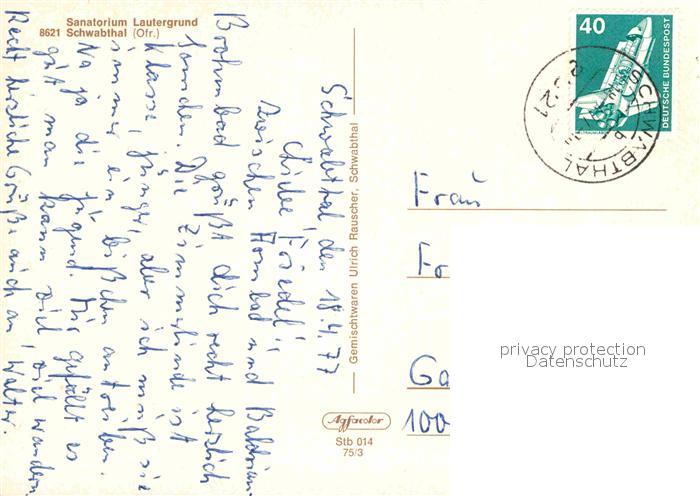 Sanatorium Lautergrund
8621 Schwabthal (Ofr.)
Schwabthal, den 18.4.77
Liebe Friedel!
Zwischen Hornbad und Baldrian-
Brombad grüßt dich recht herzlich
die Zimmerlinde ist
Klasse, jünger, aber ich muß sie
immer ein bißchen antreiben.
Na ja die Jugend. Mir gefällt es
gut man kann viel wandern.
Recht herzliche Grüße auch an Walter.
Gemischtwaren Ulrich Rauscher, Schwabthal
Agfacolor
Stb 014
75/3
40
DEUTSCHE BUNDESPOST
SCHWABTHAL
8621
Frau
Fr
Ga
100
privacy protection
Datenschutz